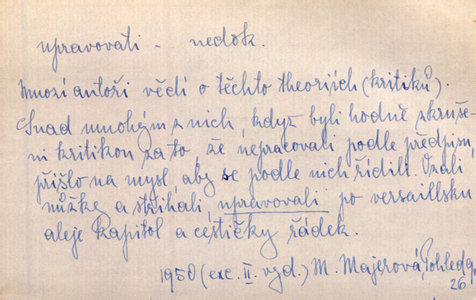 upravovati - nedok.
Mnozí autoři vědí o těchto theorijích (kritiků).
Snad mnohým z nich, když byli hodně zkruše-
ni kritikou za to že nepracovali podle předpisu,
přišlo na mysl, aby se podle nich řídili. Vzali
nůžky a stříhali, upravovali po versaillsku
aleje kapitol a cestičky řádek.
1950 (exc. II. vyd.) M. Majerová, Pohledy,
26